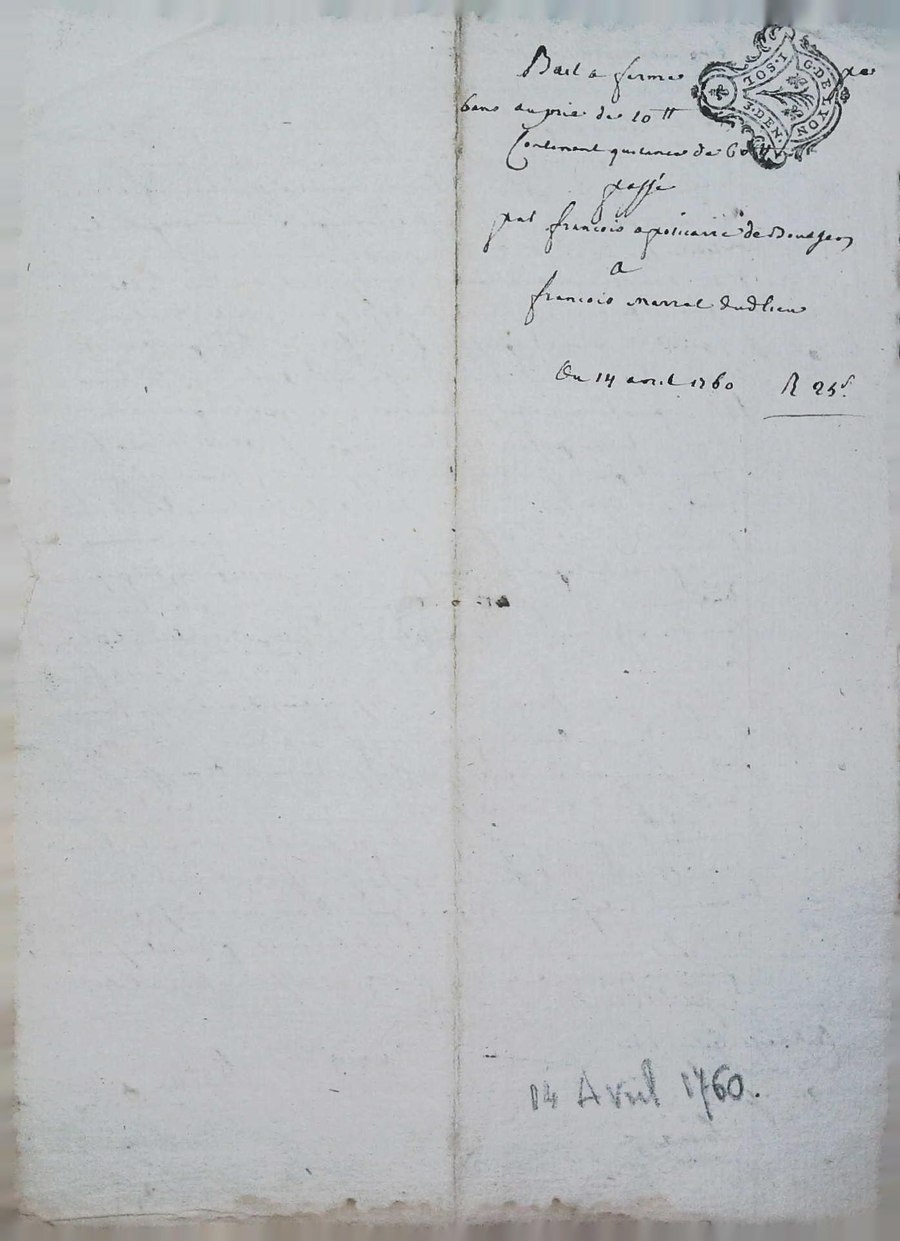 Bail a ferme
6 ans au prix de 10 ₶
Contenant quitance de 60 ₶
passé
par françois apoticaire de Bourgeon
a
françois marral dud lieu
Du 14 avril 1760 R 25ˢ.
G·DE LYON
TOS·T
3·DEN.
14 Avril 1760.